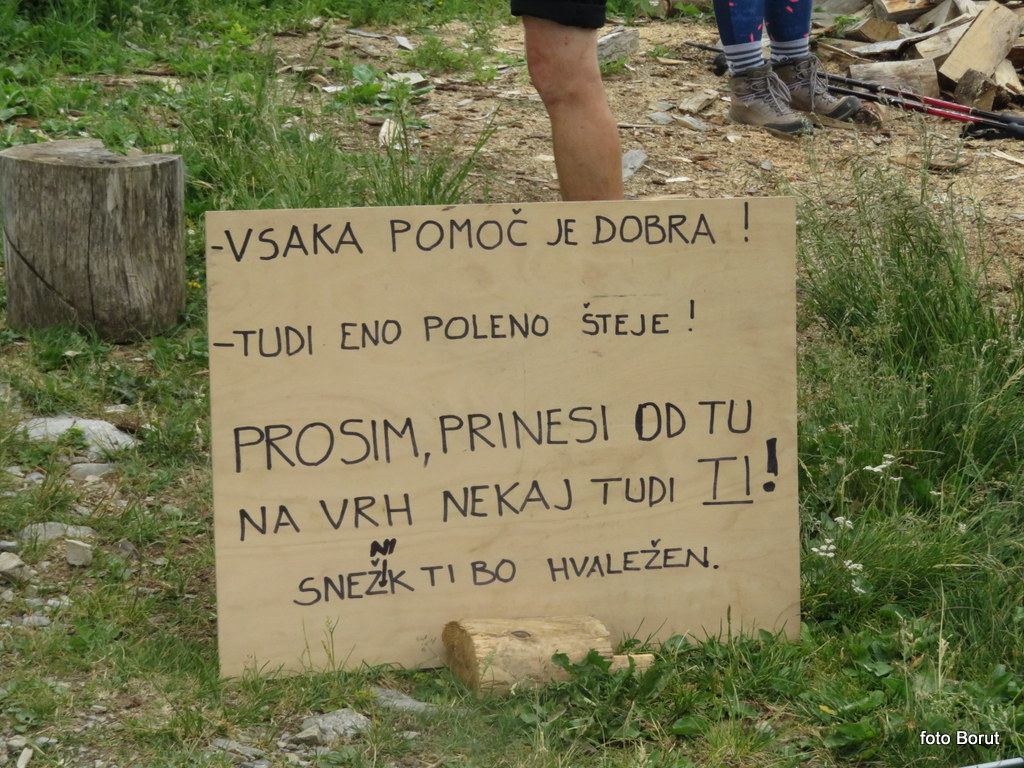 -VSAKA POMOČ JE DOBRA !
-TUDI ENO POLENO ŠTEJE !
PROSIM, PRINESI OD TU
NA VRH NEKAJ TUDI TI!
NI
SNEŽIK TI BO HVALEŽEN.
foto Borut